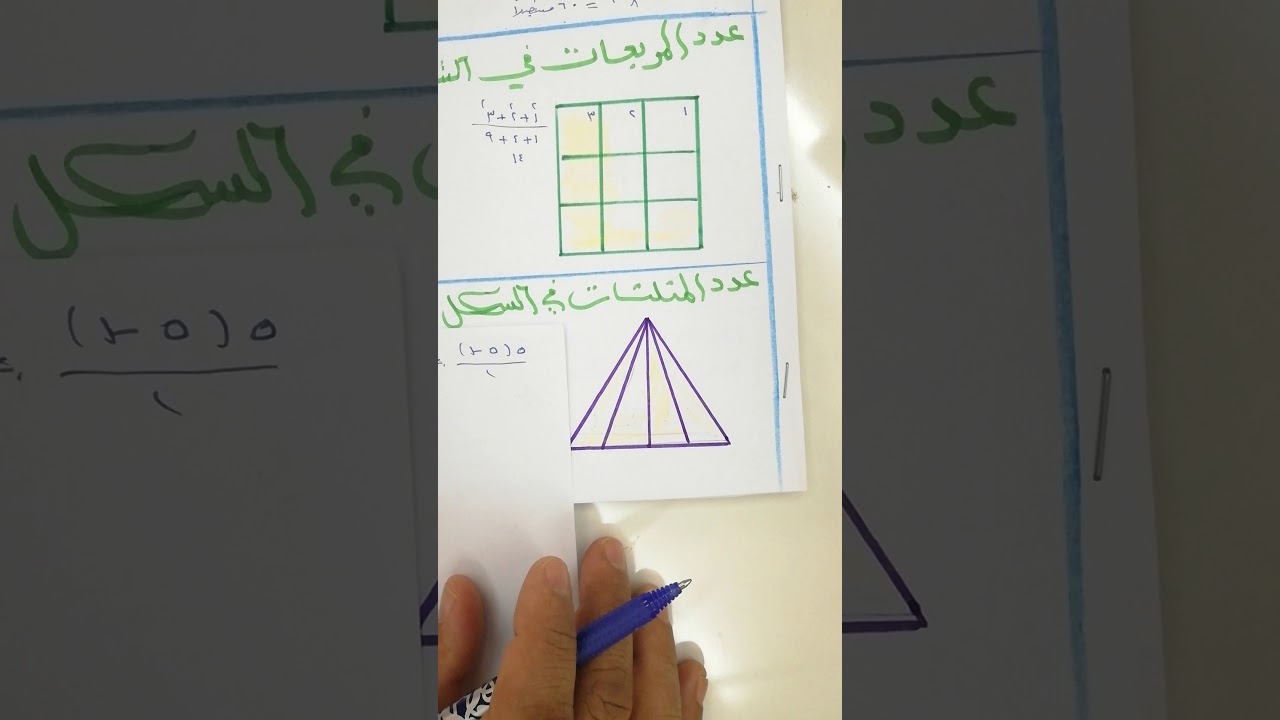 = ٦٠
عدد المربعات في الش
٣ ٢ ١
٢ ٢ ٢
١+٢+٣
١+٤+٩
١٤
عدد المثلثات في الشكل
٥(٥-